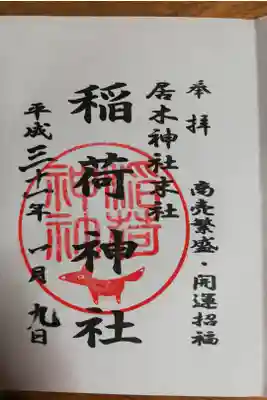 奉拝
商売繁盛・開運招福
居木神社末社
稲荷神社
平成三十一年一月九日
稲荷
神社